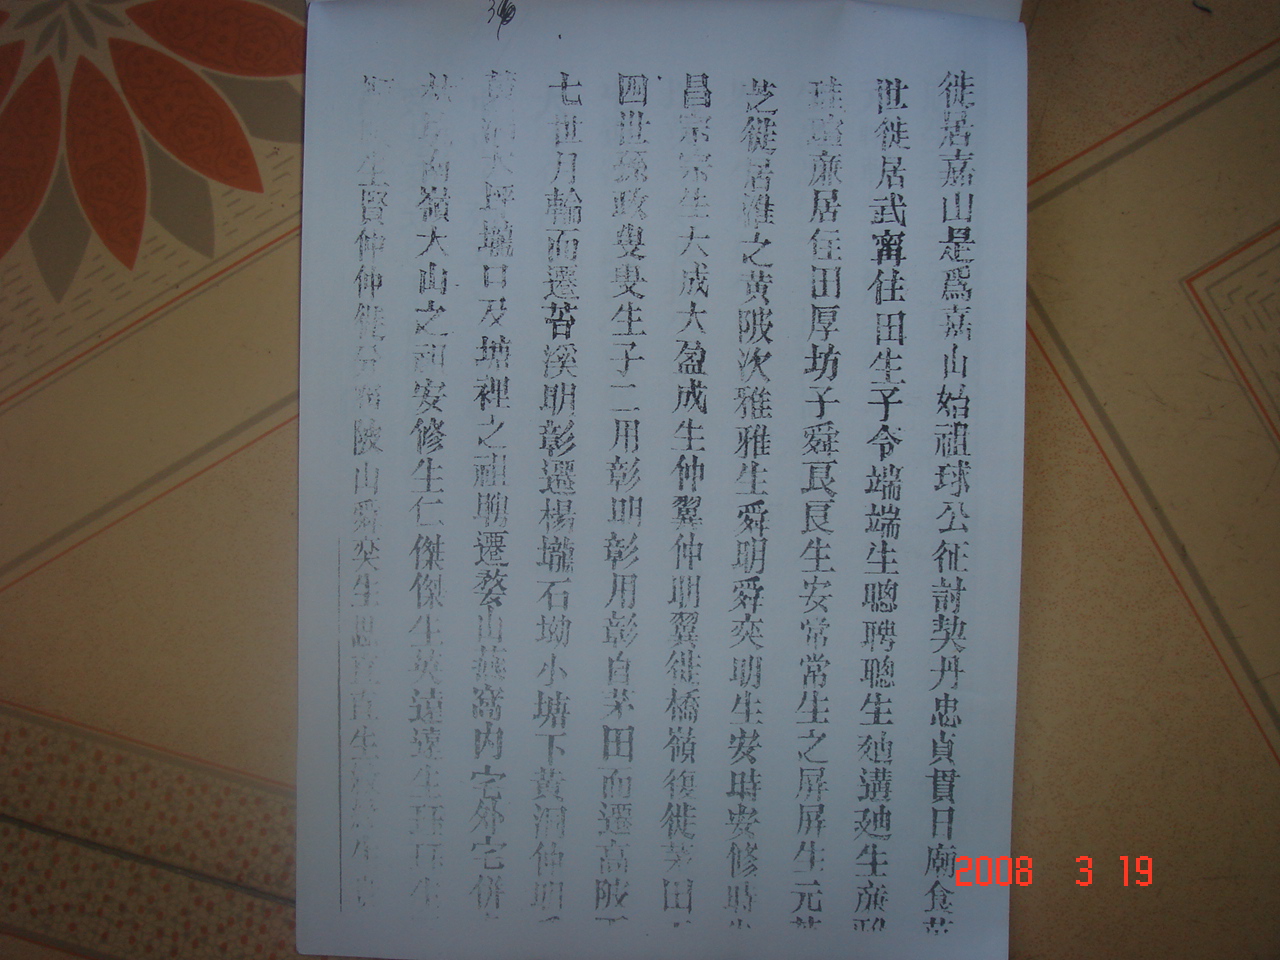 徙居嘉山是爲嘉山始祖球公征討契丹忠貞貫日廟食
世徙居武甯住田生子令端端生聰聘聰生㢠遘㢠生蔗
蔗居住田厚坊子舜良良生安常常生之屏屏生元
芝徙居淮之黄陂次雅雅生舜明舜奕明生安時安修時
昌宗宗生大成大盈成生仲翼仲明翼徙橋嶺復徙茅田
四世孫政叟叟生子二用彰明彰用彰自茅田而遷高陂
七世月輪而遷苔溪明彰遷楊壠石坳小塘下黄洞仲明
大坪壠口及塘裡之祖聘遷婺山燕窩内宅外宅併
嶺大山之祖安修生仁傑傑生英遠遠生
生賢仲仲徙陂山舜奕生思直直生
36
2008 3 19